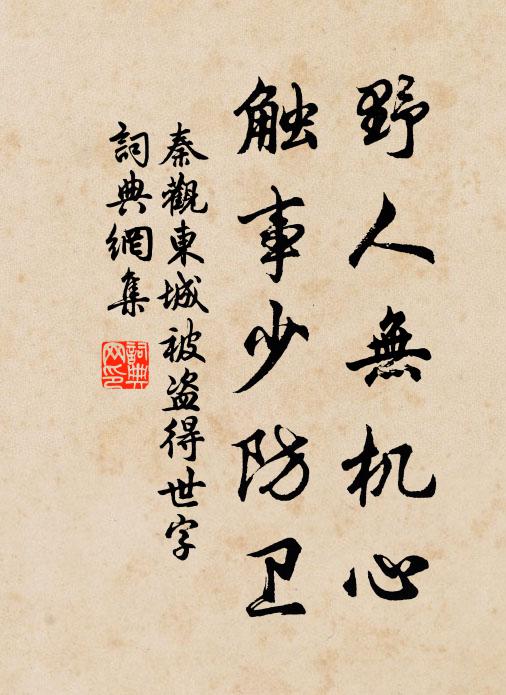 野人無机心
触事少防卫
秦觀東城被盗得世字
詞典網集
詞典網印